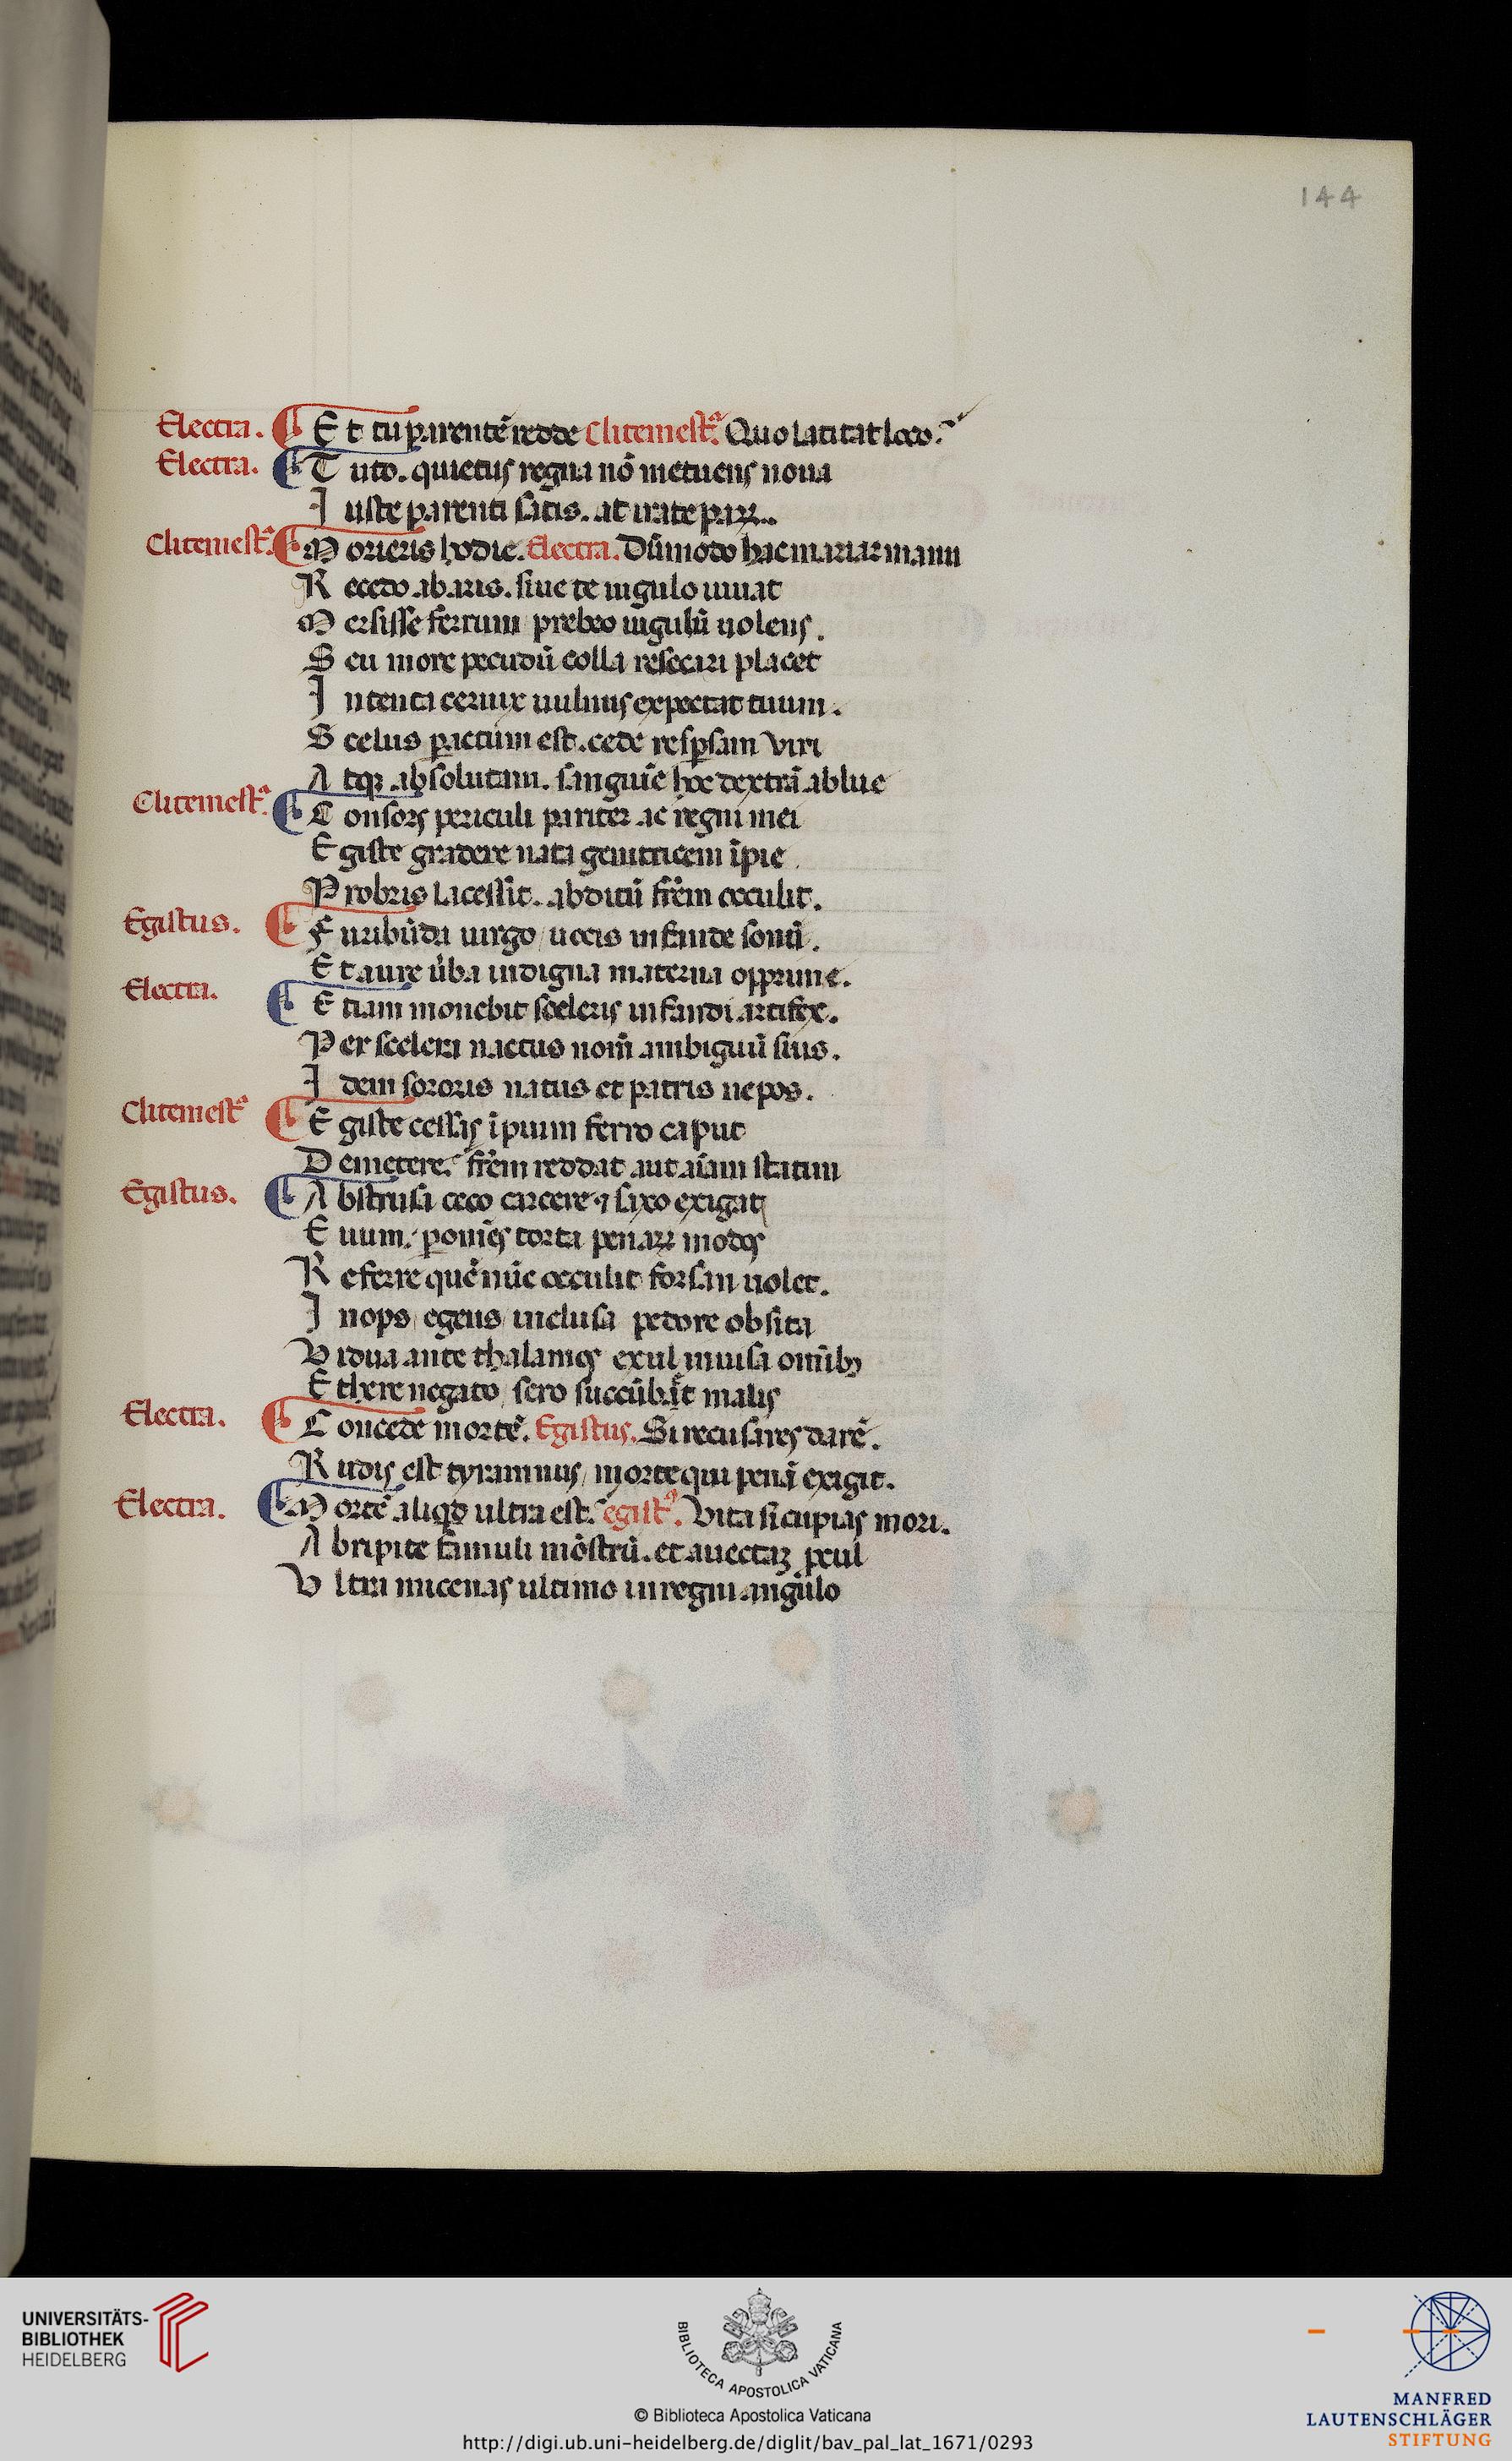 144
Electra. E t tu parentē redde Clitemestᵃ. Quo latitat loco.
Electra. T uto. quietus regna nō metuens noua
I uste parenti satis. at irate parꝝ.
Clitemestᵃ. M orieris hodie. Electra. Dūmodo hac moriar manu
R ecedo ab aris. siue te iugulo iuuat
M ersisse ferrum prebeo iugulū uolens.
S eu more pecudū colla resecari placet
I ntenta ceruix uulnus expectat tuum.
S celus pactum est. cede respsam viri
A tqꝫ absolutam. sanguīe hoc dextrā ablue
Clitemestᵃ. C onsors periculi pariter ac regni mei
E giste gradere nata genitricem īpie
P robris lacessit. abditū frēm occulit.
Egistus. F uribūda uirgo uocis infande sonū.
E t aure ūba indigna materna opprime.
Electra. E tiam monebit sceleris infandi artifex.
P er scelera nactus nom̄ ambiguū suis.
I dem sororis natus et patris nepos.
Clitemestᵃ E giste cessas īpium ferro caput
D emetere. frēm reddat aut aīam statim
Egistus. A bstrusa ceco carcere ⁊ saxo exigat
E uum. p omēs torta penaꝝ modos
R eferre quē nūc occulit forsan uolet.
I nops egens inclusa pedore obsita
V idua ante thalamos exul inuisa omībꝫ
E there negato sero succūbet malis
Electra. C oncede mortē. Egistus. Si recusares darē.
R udis est tyrannus morte qui penā exigit.
Electra. M orte aliqd ultra est. egistꝰ. Vita si cupias mori.
A bripite famuli mōstrū. et auectaꝫ pcul
V ltra micenas ultimo in regni angulo
UNIVERSITÄTS-
BIBLIOTHEK
HEIDELBERG
BIBLIOTECA APOSTOLICA VATICANA
© Biblioteca Apostolica Vaticana
http://digi.ub.uni-heidelberg.de/diglit/bav_pal_lat_1671/0293
MANFRED
LAUTENSCHLÄGER
STIFTUNG